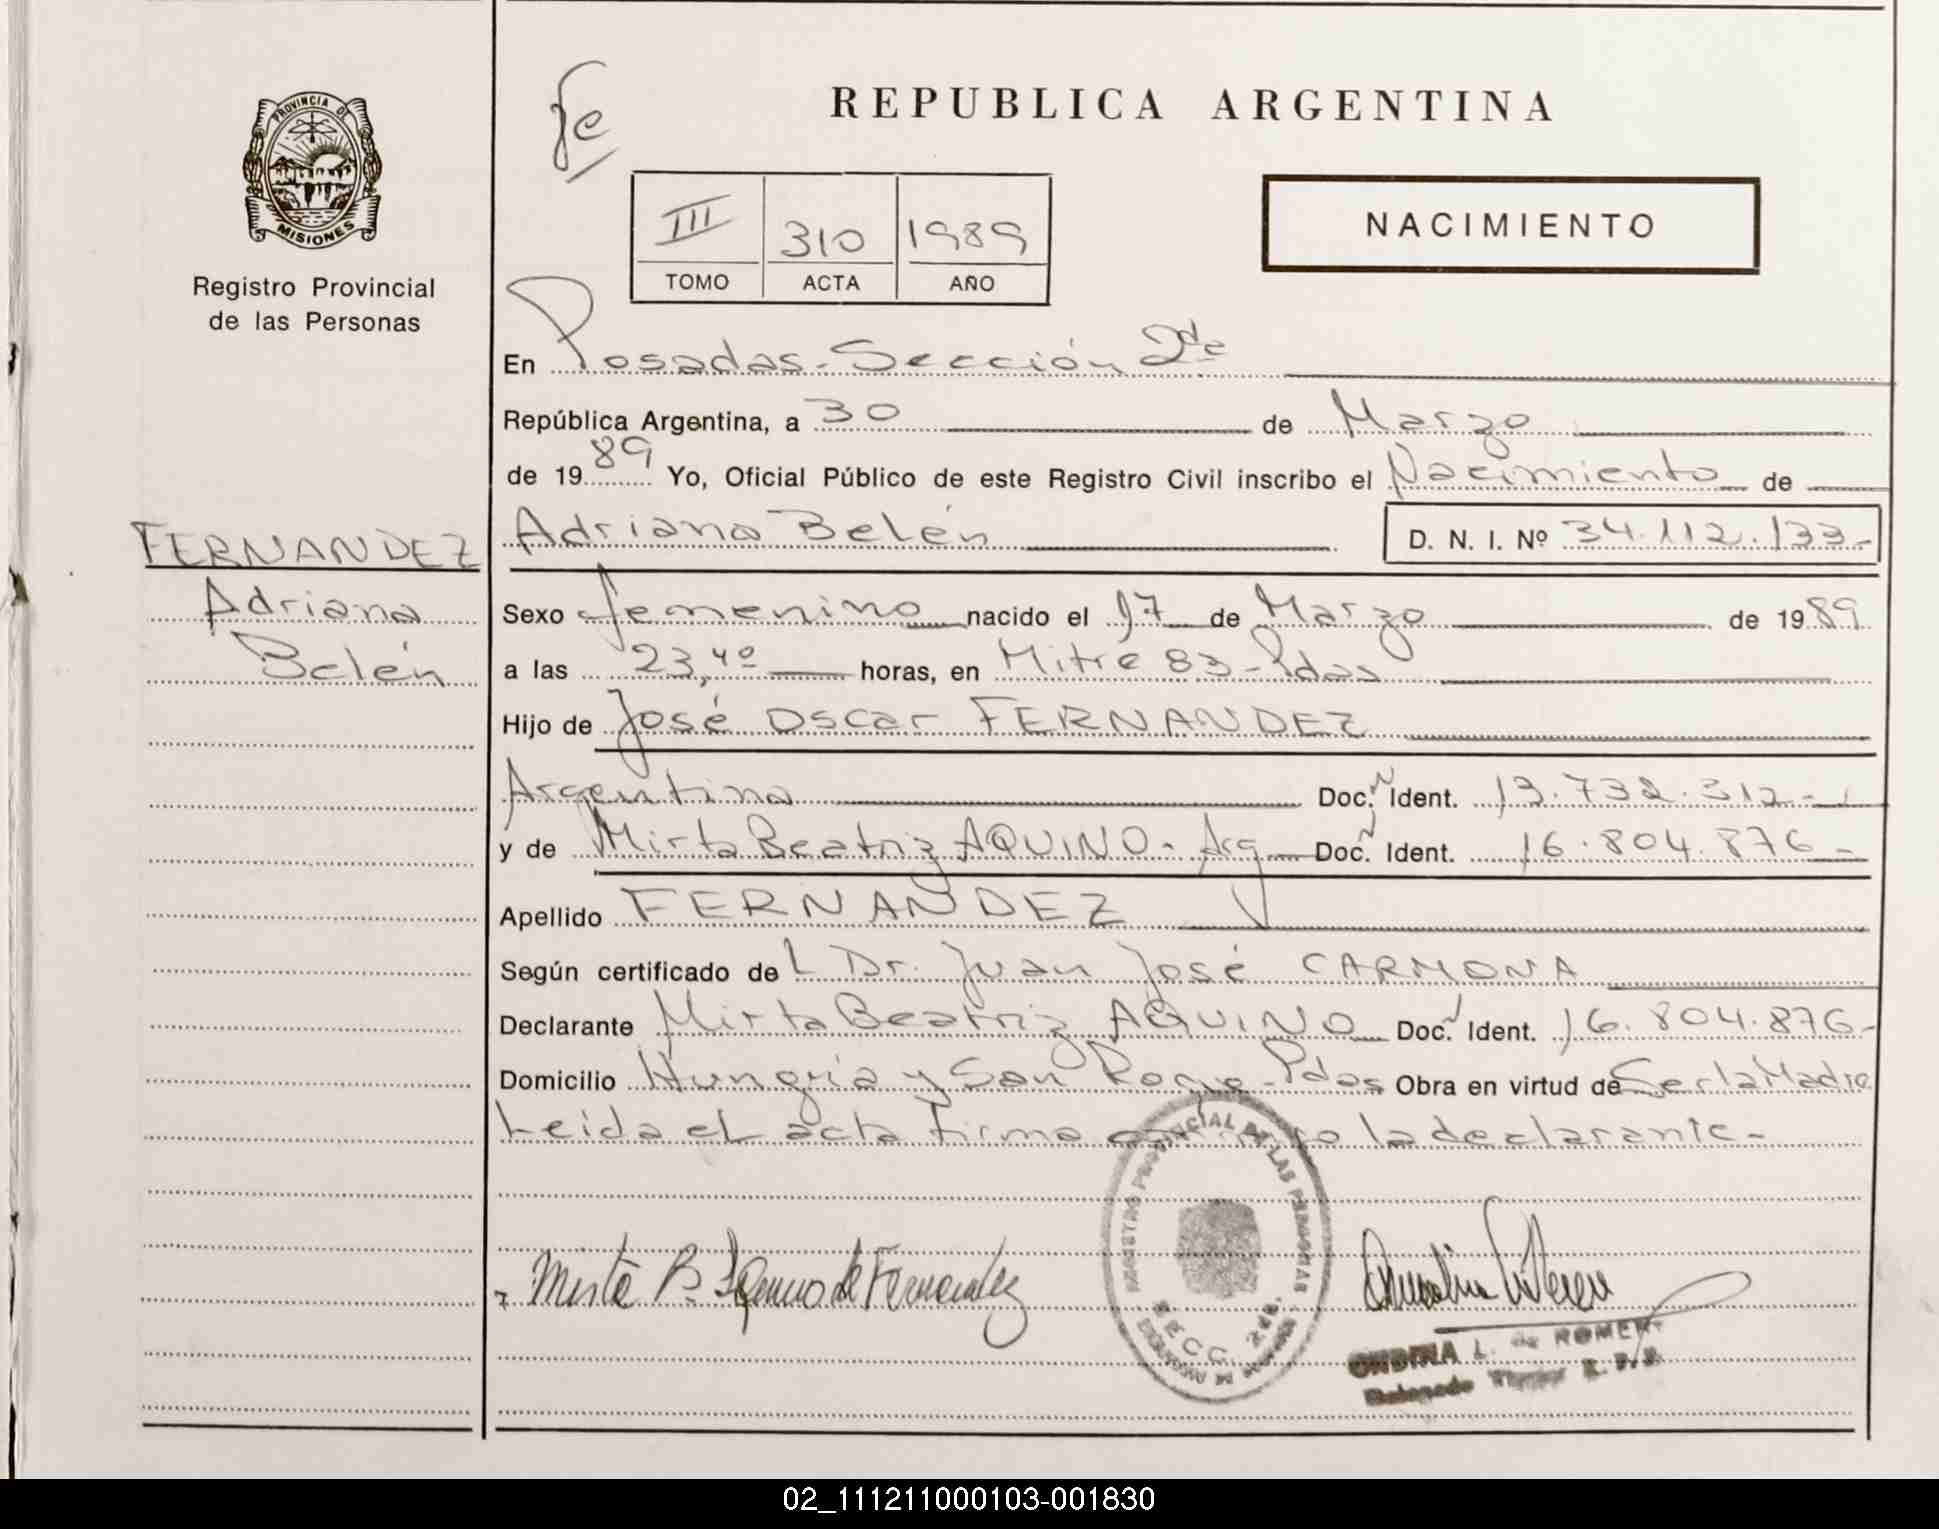 PROVINCIA DE
MISIONES
Registro Provincial
de las Personas
FERNANDEZ
Adriana
Belén
Fe
REPUBLICA ARGENTINA
III 310 1989
TOMO ACTA AÑO
NACIMIENTO
En Posadas-Sección 2da
República Argentina, a 30 de Marzo
de 1989 Yo, Oficial Público de este Registro Civil inscribo el Nacimiento de
Adriana Belén D. N. I. Nº 34.112.133-
Sexo femenino nacido el 17 de Marzo de 1989
a las 23,40 horas, en Mitre 83-Pdas
Hijo de José Oscar FERNANDEZ
Argentino Doc. Ident. 13.732.312-
y de Mirta Beatriz AQUINO- Arg Doc. Ident. 16.804.876-
Apellido FERNANDEZ
Según certificado del Dr. Juan José CARMONA
Declarante Mirta Beatriz AQUINO Doc. Ident. 16.804.876-
Domicilio Hungría y San Roque-Pdas Obra en virtud de Ser la Madre
Leída el acta firma conmigo la declarante-
REGISTRO PROVINCIAL DE LAS PERSONAS
SECC. 2da.
Mirta B. Aquino de Fernandez
ONDINA L. de ROMERO
02_111211000103-001830